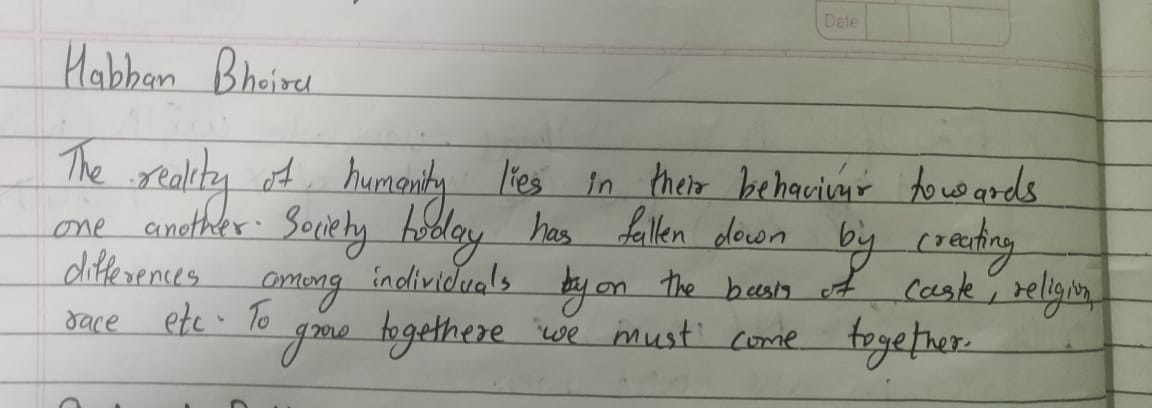 Date
Habban Bhoira
The reality of humanity lies in their behaviour towards
one another. Society today has fallen down by creating
differences among individuals on the basis of caste, religion,
race etc. To grow togethere we must come together.